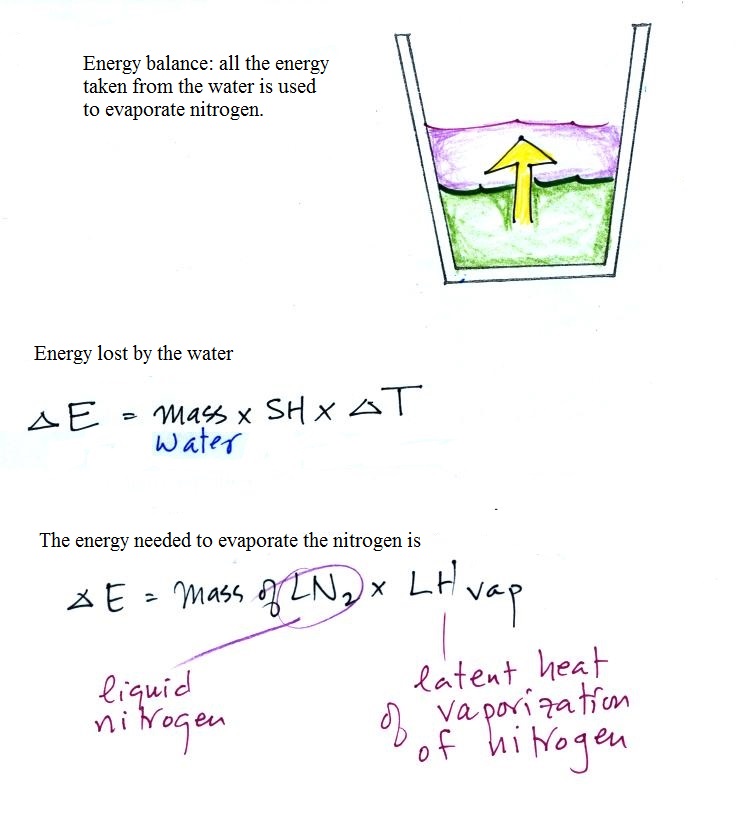 Energy balance: all the energy
taken from the water is used
to evaporate nitrogen.
Energy lost by the water
ΔE = mass x SH x ΔT
Water
The energy needed to evaporate the nitrogen is
ΔE = mass of LN₂ x LH vap
liquid
nitrogen
latent heat
of vaporization
of nitrogen